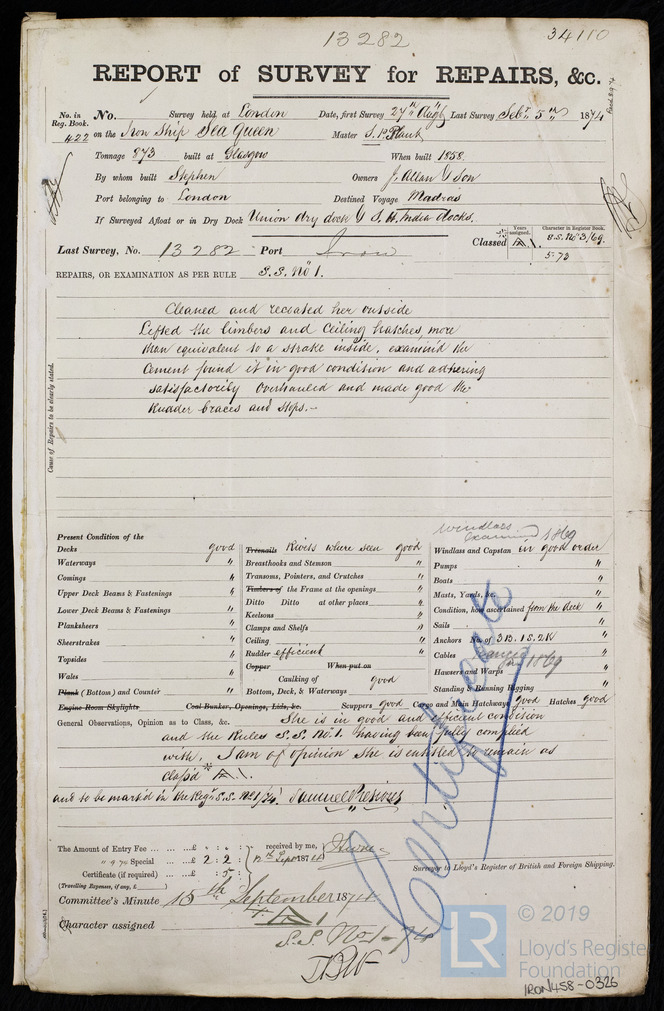 13282
34110
REPORT of SURVEY for REPAIRS, &c.
No. in Reg. Book. No. Survey held at London Date, first Survey 27th Augt Last Survey Sebr 5th 1874
422 on the Iron Ship Sea Queen Master S. P. Plant
Tonnage 873 built at Glasgow When built 1858.
By whom built Stephen Owners J. Allan & Son
Port belonging to London Destined Voyage Madras
If Surveyed Afloat or in Dry Dock Union dry dock & S. W. India Docks.
Years assigned. Character in Register Book.
Last Survey, No. 13282 Port Iron Classed A 1. S.S. No 3/69.
5.73
REPAIRS, OR EXAMINATION AS PER RULE S.S. No 1.
Cause of Repairs to be clearly stated.
Cleaned and recoated her outside
Lifted the limbers and Ceiling hatches more
than equivalent to a strake inside, examin'd the
Cement found it in good condition and adhering
satisfactorily Overhauled and made good the
Rudder braces and stops.-
Windlass
Examined 1869
Present Condition of the
Decks good
Waterways "
Comings "
Upper Deck Beams & Fastenings "
Lower Deck Beams & Fastenings "
Planksheers "
Sheerstrakes "
Topsides "
Wales "
Plank (Bottom) and Counter "
Engine Room Skylights Coal Bunker, Openings, Lids, &c.
Treenails Rivets where seen good
Breasthooks and Stemson "
Transoms, Pointers, and Crutches "
Timbers of the Frame at the openings "
Ditto Ditto at other places "
Keelsons "
Clamps and Shelfs "
Ceiling "
Rudder efficient
Copper When put on
Caulking of good
Bottom, Deck, & Waterways "
Windlass and Capstan in good order
Pumps "
Boats "
Masts, Yards, &c. "
Condition, how ascertained from the deck "
Sails "
Anchors No. of 3B. 1S. 2K "
Cables "
1869
Hawsers and Warps "
Standing & Running Rigging "
Scuppers good Cargo and Main Hatchways good Hatches good
General Observations, Opinion as to Class, &c. She is in good and efficient condition
and the Rules S.S. No 1. having been fully complied
with. I am of opinion she is entitled to remain as
class'd A 1.
and to be mark'd in the Regr S.S. No 1/74. Samuel Pretious
Certificate
The Amount of Entry Fee ... £ : : received by me,
Special ... £ 2 : 2 : 12th Sept 1874
Certificate (if required) ... £ : 5 :
(Travelling Expenses, if any, £ )
Surveyor to Lloyd's Register of British and Foreign Shipping.
Committee's Minute 15th September 1874
Character assigned A 1
S.S. No 1-74
LR © 2019
Lloyd's Register
Foundation
IRON458-0326